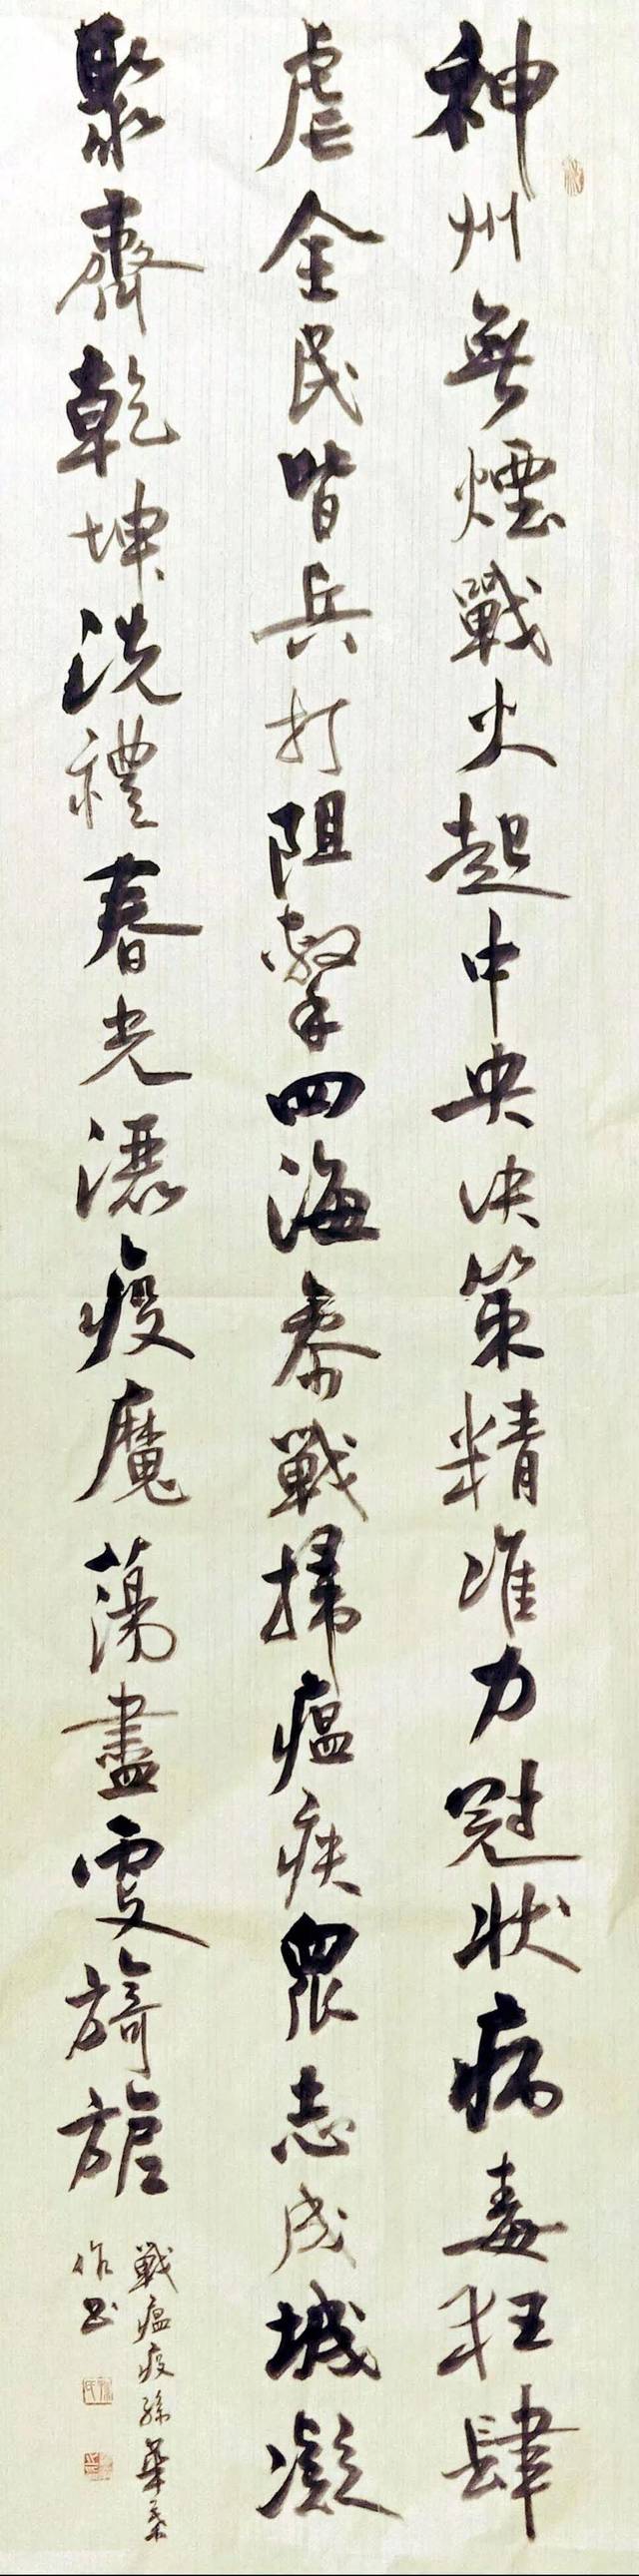 神州無煙戰火起中央决策精准力冠状病毒狂肆
虐全民皆兵打阻擊四海參戰掃瘟疾眾志成城凝
聚齊乾坤洗禮春光灑疫魔蕩盡雯旖旎
戰瘟疫孫華
作書